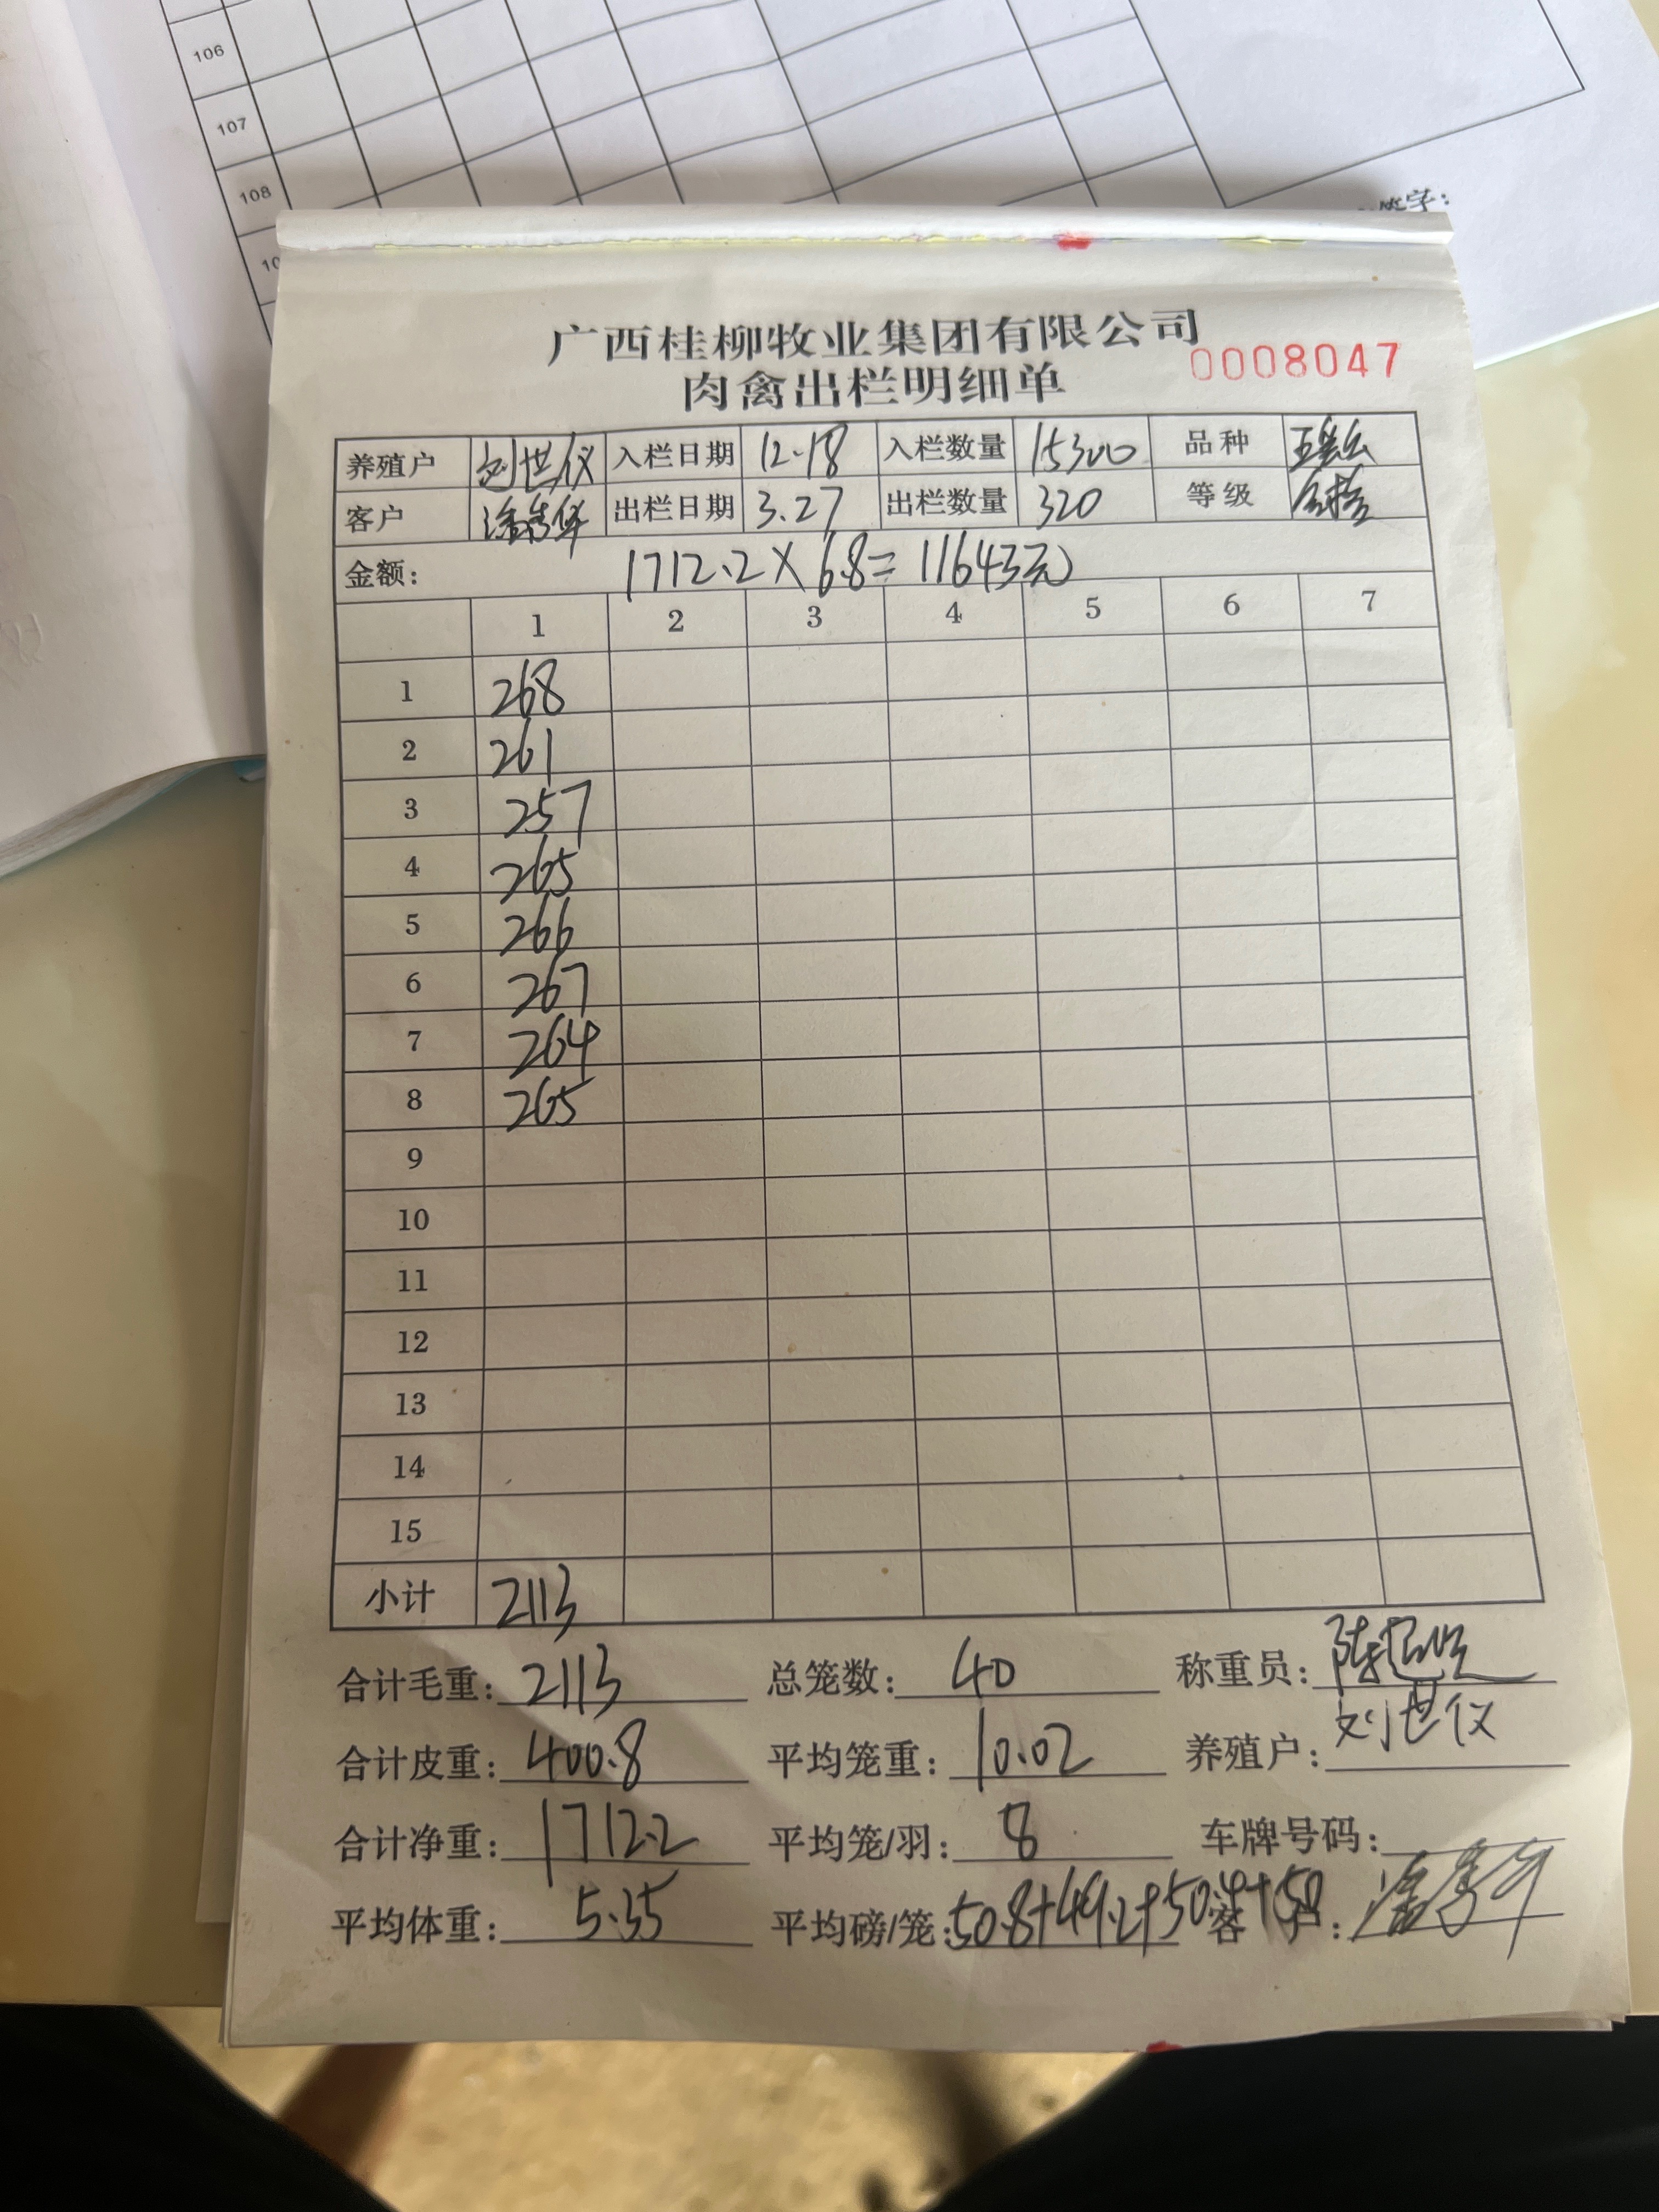 106
107
108
10
签字:
广西桂柳牧业集团有限公司
肉禽出栏明细单
0008047
养殖户 刘世仪 入栏日期 12.18 入栏数量 15300 品种
客户 出栏日期 3.27 出栏数量 320 等级
金额: 1712.2×6.8=11643元
1 2 3 4 5 6 7
1 268
2 261
3 257
4 265
5 266
6 267
7 264
8 265
9
10
11
12
13
14
15
小计 2113
合计毛重: 2113 总笼数: 40 称重员:
合计皮重: 400.8 平均笼重: 10.02 养殖户: 刘世仪
合计净重: 1712.2 平均笼/羽: 8 车牌号码:
平均体重: 5.35 平均磅/笼: 50.8+49.2+50.4+50 客户: